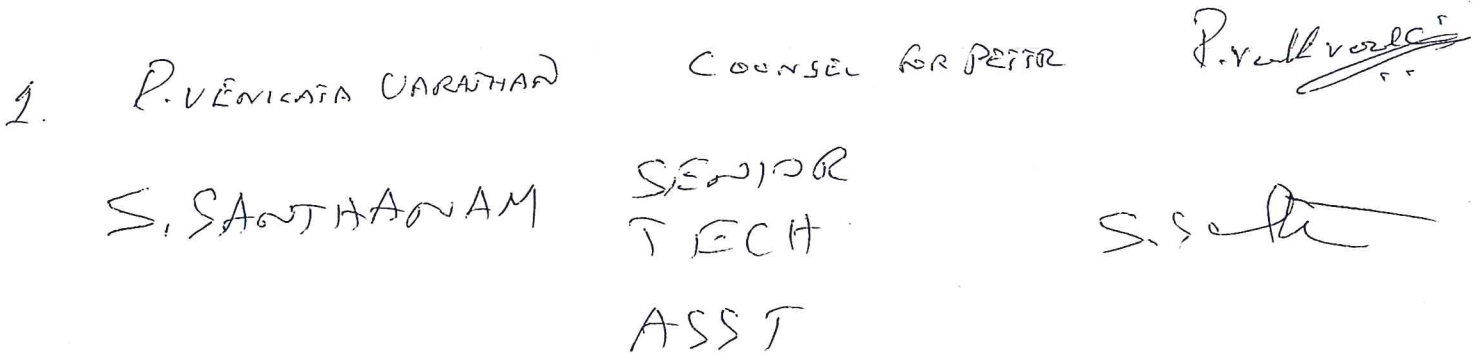 1. P. VENKATA VARATHAN COUNSEL FOR PETTR
S. SANTHANAM SENIOR
TECH
ASST